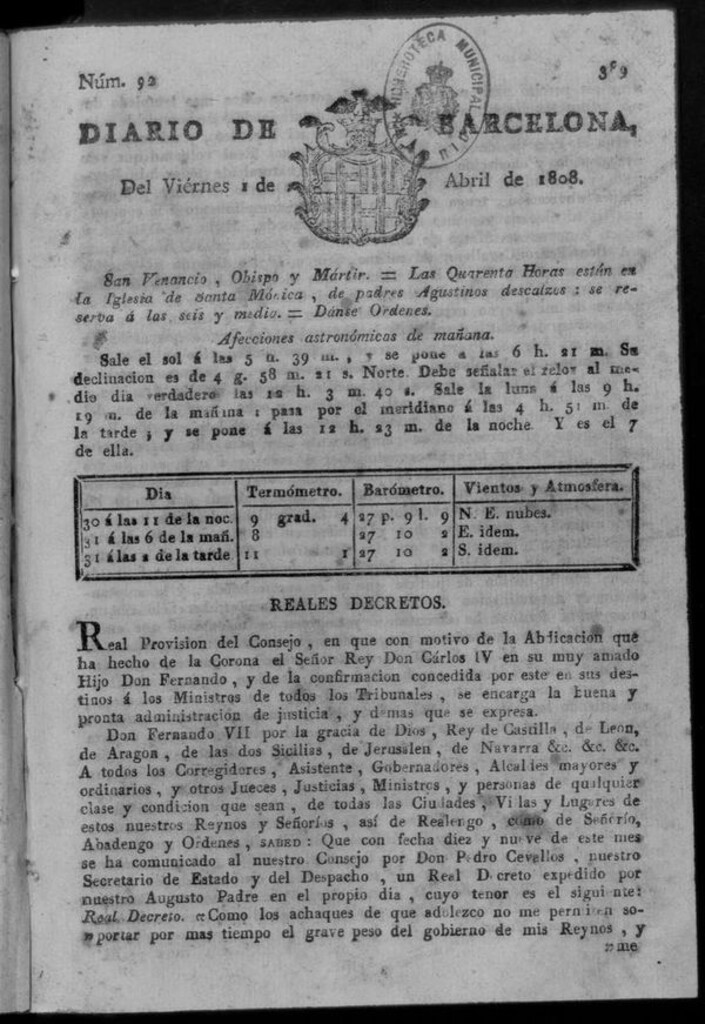 Núm. 92
389
HEMEROTECA MUNICIPAL
DIARIO DE BARCELONA,
Del Viérnes 1 de Abril de 1808.
San Venancio, Obispo y Mártir. = Las Quarenta Horas están en
la Iglesia de Santa Mónica, de padres Agustinos descalzos: se re-
serva á las seis y media. = Danse Ordenes.
Afecciones astronómicas de mañana.
Sale el sol á las 5 h. 39 m., y se pone á las 6 h. 21 m. Su
declinacion es de 4 g. 58 m. 21 s. Norte. Debe señalar el relox al me-
dio dia verdadero las 12 h. 3 m. 40 s. Sale la luna á las 9 h.
19 m. de la mañana: pasa por el meridiano á las 4 h. 51 m. de
la tarde; y se pone á las 12 h. 23 m. de la noche. Y es el 7
de ella.
Dia Termómetro. Barómetro. Vientos y Atmosfera.
30 á las 11 de la noc. 9 grad. 4 27 p. 9 l. 9 N. E. nubes.
31 á las 6 de la mañ. 8 27 10 2 E. idem.
31 á las 2 de la tarde 11 1 27 10 2 S. idem.
REALES DECRETOS.
Real Provision del Consejo, en que con motivo de la Abdicacion que
ha hecho de la Corona el Señor Rey Don Cárlos IV en su muy amado
Hijo Don Fernando, y de la confirmacion concedida por este en sus des-
tinos á los Ministros de todos los Tribunales, se encarga la buena y
pronta administracion de justicia, y demas que se expresa.
Don Fernando VII por la gracia de Dios, Rey de Castilla, de Leon,
de Aragon, de las dos Sicilias, de Jerusalen, de Navarra &c. &c. &c.
A todos los Corregidores, Asistente, Gobernadores, Alcaldes mayores y
ordinarios, y otros Jueces, Justicias, Ministros, y personas de qualquier
clase y condicion que sean, de todas las Ciudades, Villas y Lugares de
estos nuestros Reynos y Señoríos, así de Realengo, como de Señorío,
Abadengo y Ordenes, SABED: Que con fecha diez y nueve de este mes
se ha comunicado al nuestro Consejo por Don Pedro Cevallos, nuestro
Secretario de Estado y del Despacho, un Real Decreto expedido por
nuestro Augusto Padre en el propio dia, cuyo tenor es el siguiente:
Real Decreto. «Como los achaques de que adolezco no me permiten so-
»portar por mas tiempo el grave peso del gobierno de mis Reynos, y
»me